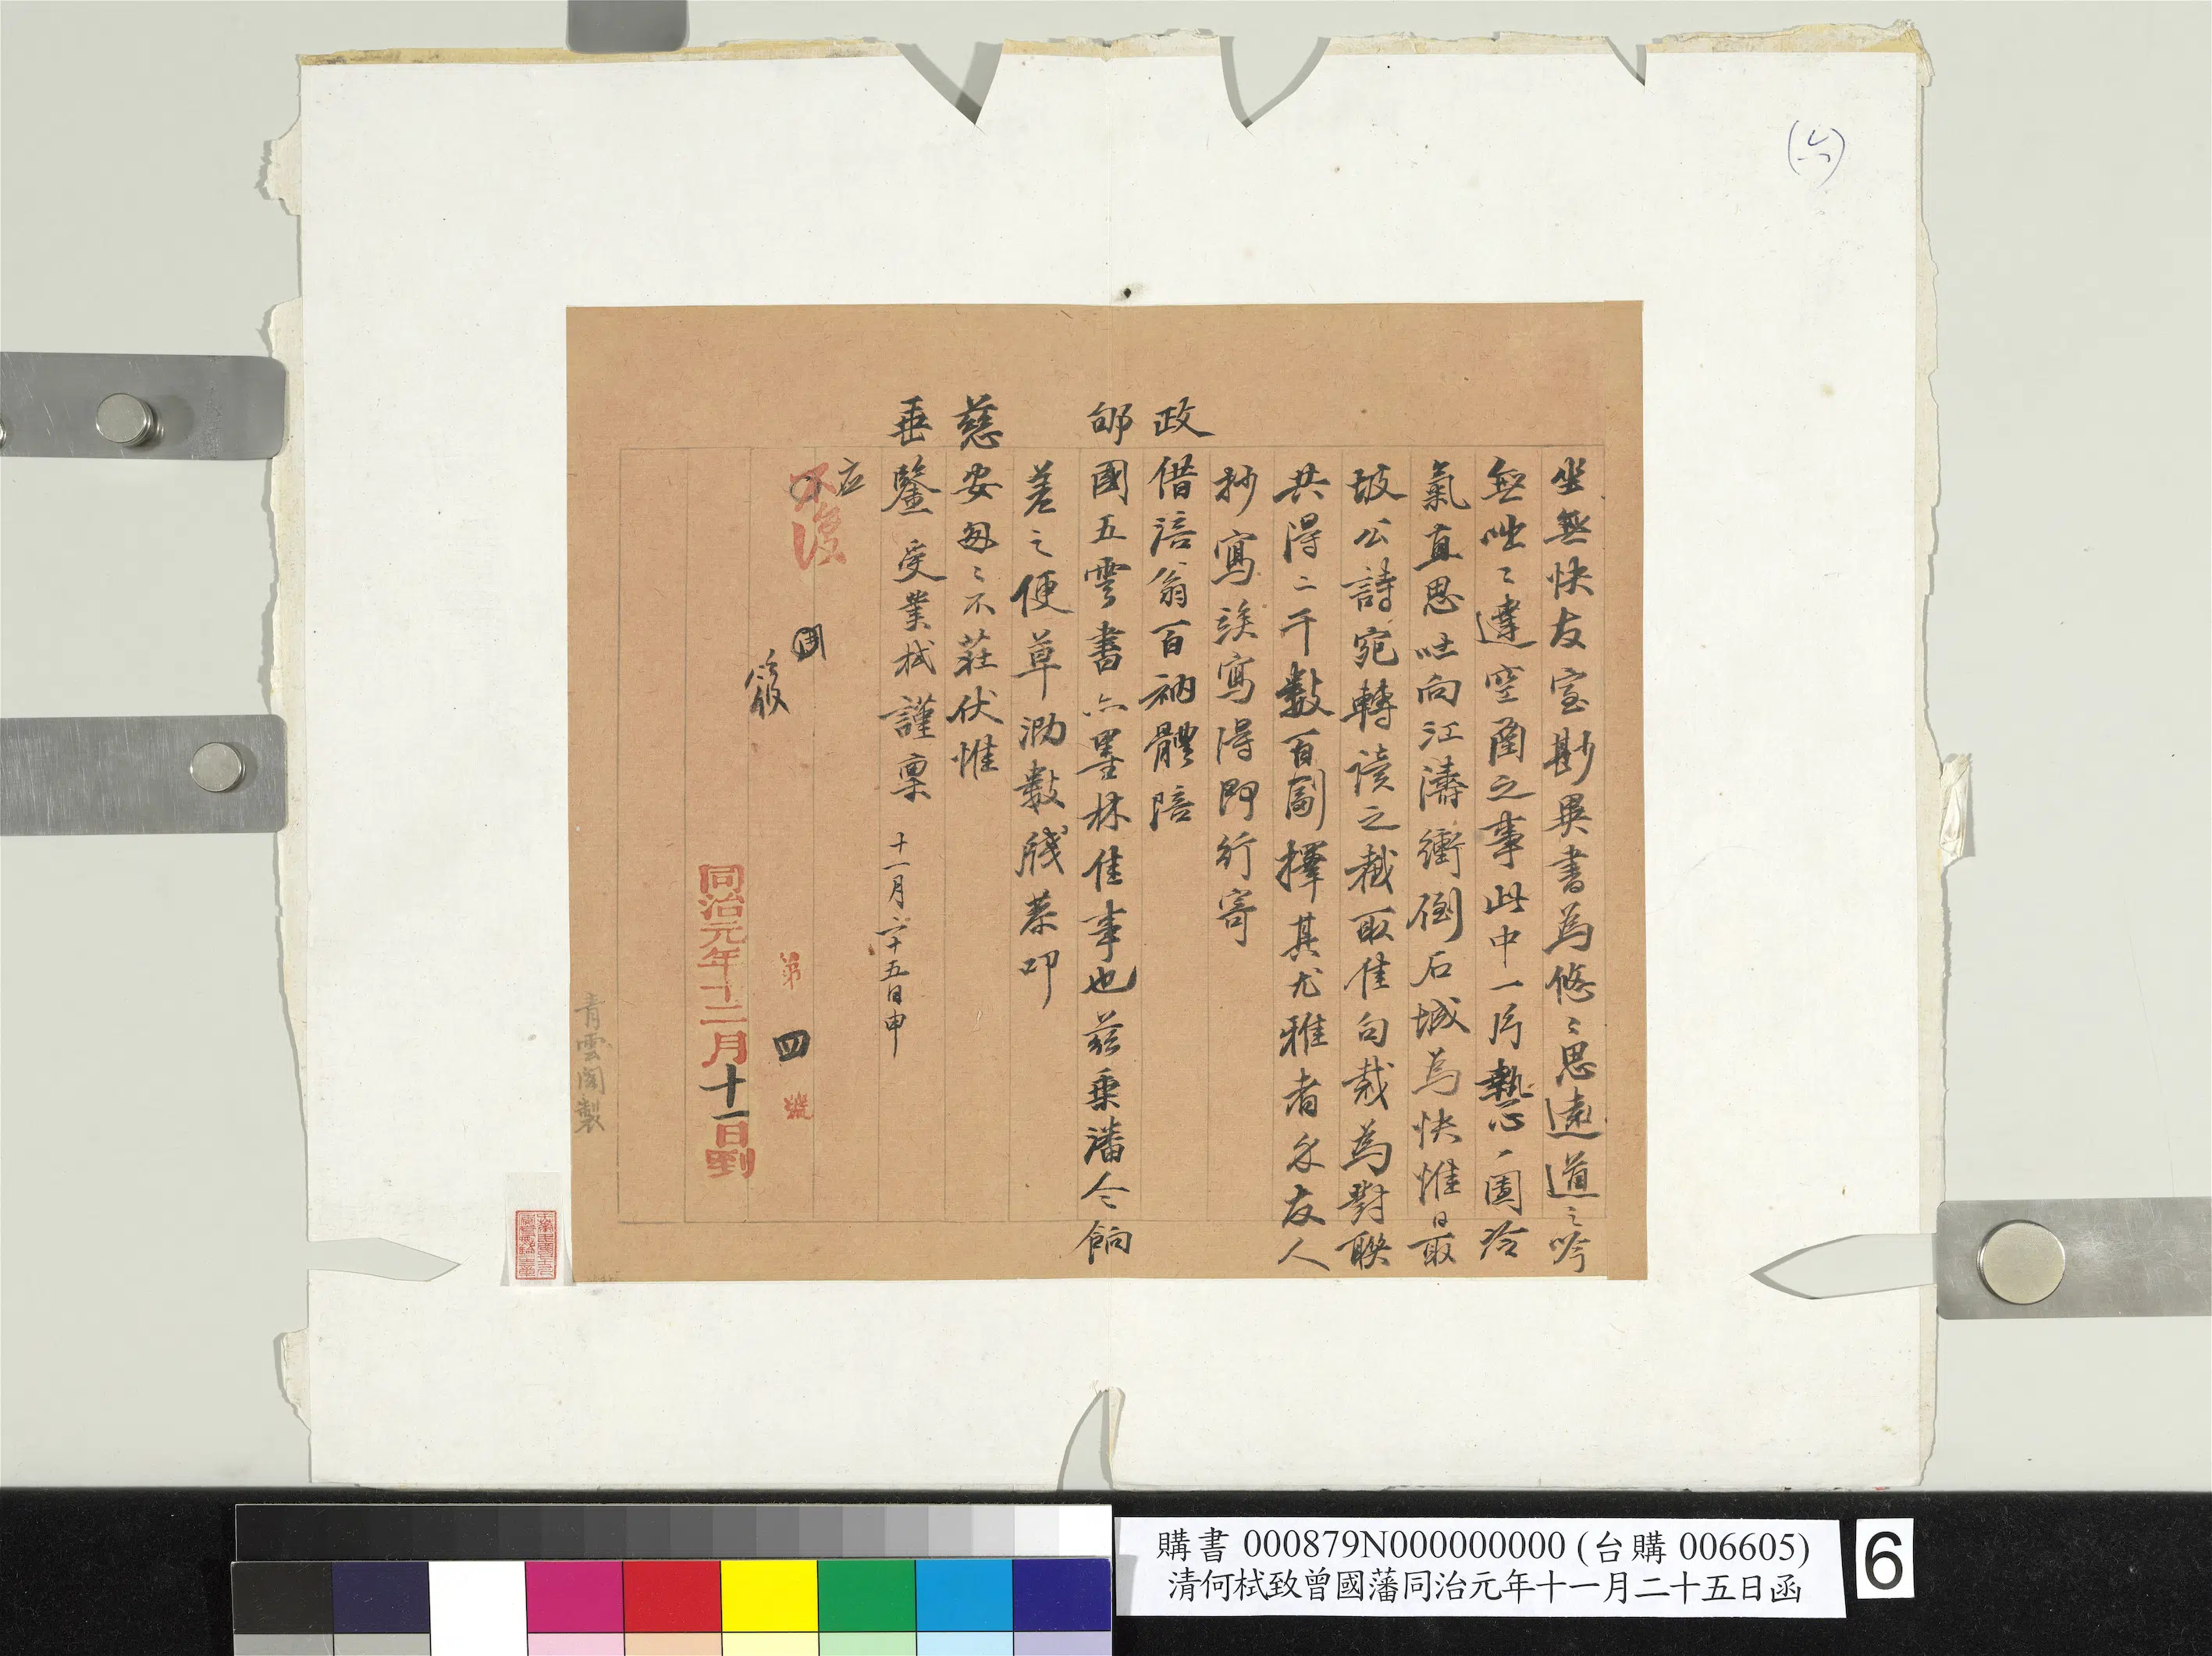 (六)
坐無快友室尠異書為悠〻思遠道之吟
無咄〻達空函之事此中一片熱心圍冷
氣直思吐向江濤衝倒石城為快惟日取
坡公詩宛轉讀之截取佳句裁為對聯
共得二千數百副擇其尤雅者永友人
抄寫竢寫得即行寄
政借涪翁百衲體陪
郇國五雲書亦墨林佳事也茲乘潘令餉
差之便草泐數牋恭叩
慈安匆〻不莊伏惟
垂鑒 受業栻謹稟 十一月廿五日申
应
不復
閱
第四號
同治元年十二月十一日到
青雲閣製
購書 000879N000000000 (台購 006605)
清何栻致曾國藩同治元年十一月二十五日函
6